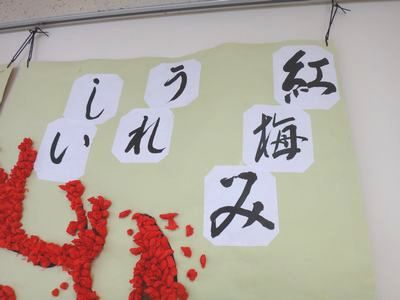 紅梅み
うれ
しい